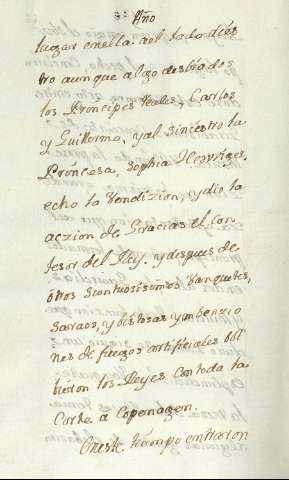 Año
lugar en ella. ael lado dies
tro aunque algo desbiados
los Prinçipes Reales, Carlos
y Guillermo, y al siniestro la
Prinçesa, Sophia
echo la Vendizion, y dio la
aczion de Gracias el Con
fesor del Rey. y despues de
otros Sumtuosisimos Vanquetes,
Saraos, y bistosas ymbenzio
nes de fuegos artifiçiales bol
bieron los Reyes con toda la
Corte a Copenagen.
En este tiempo entraron